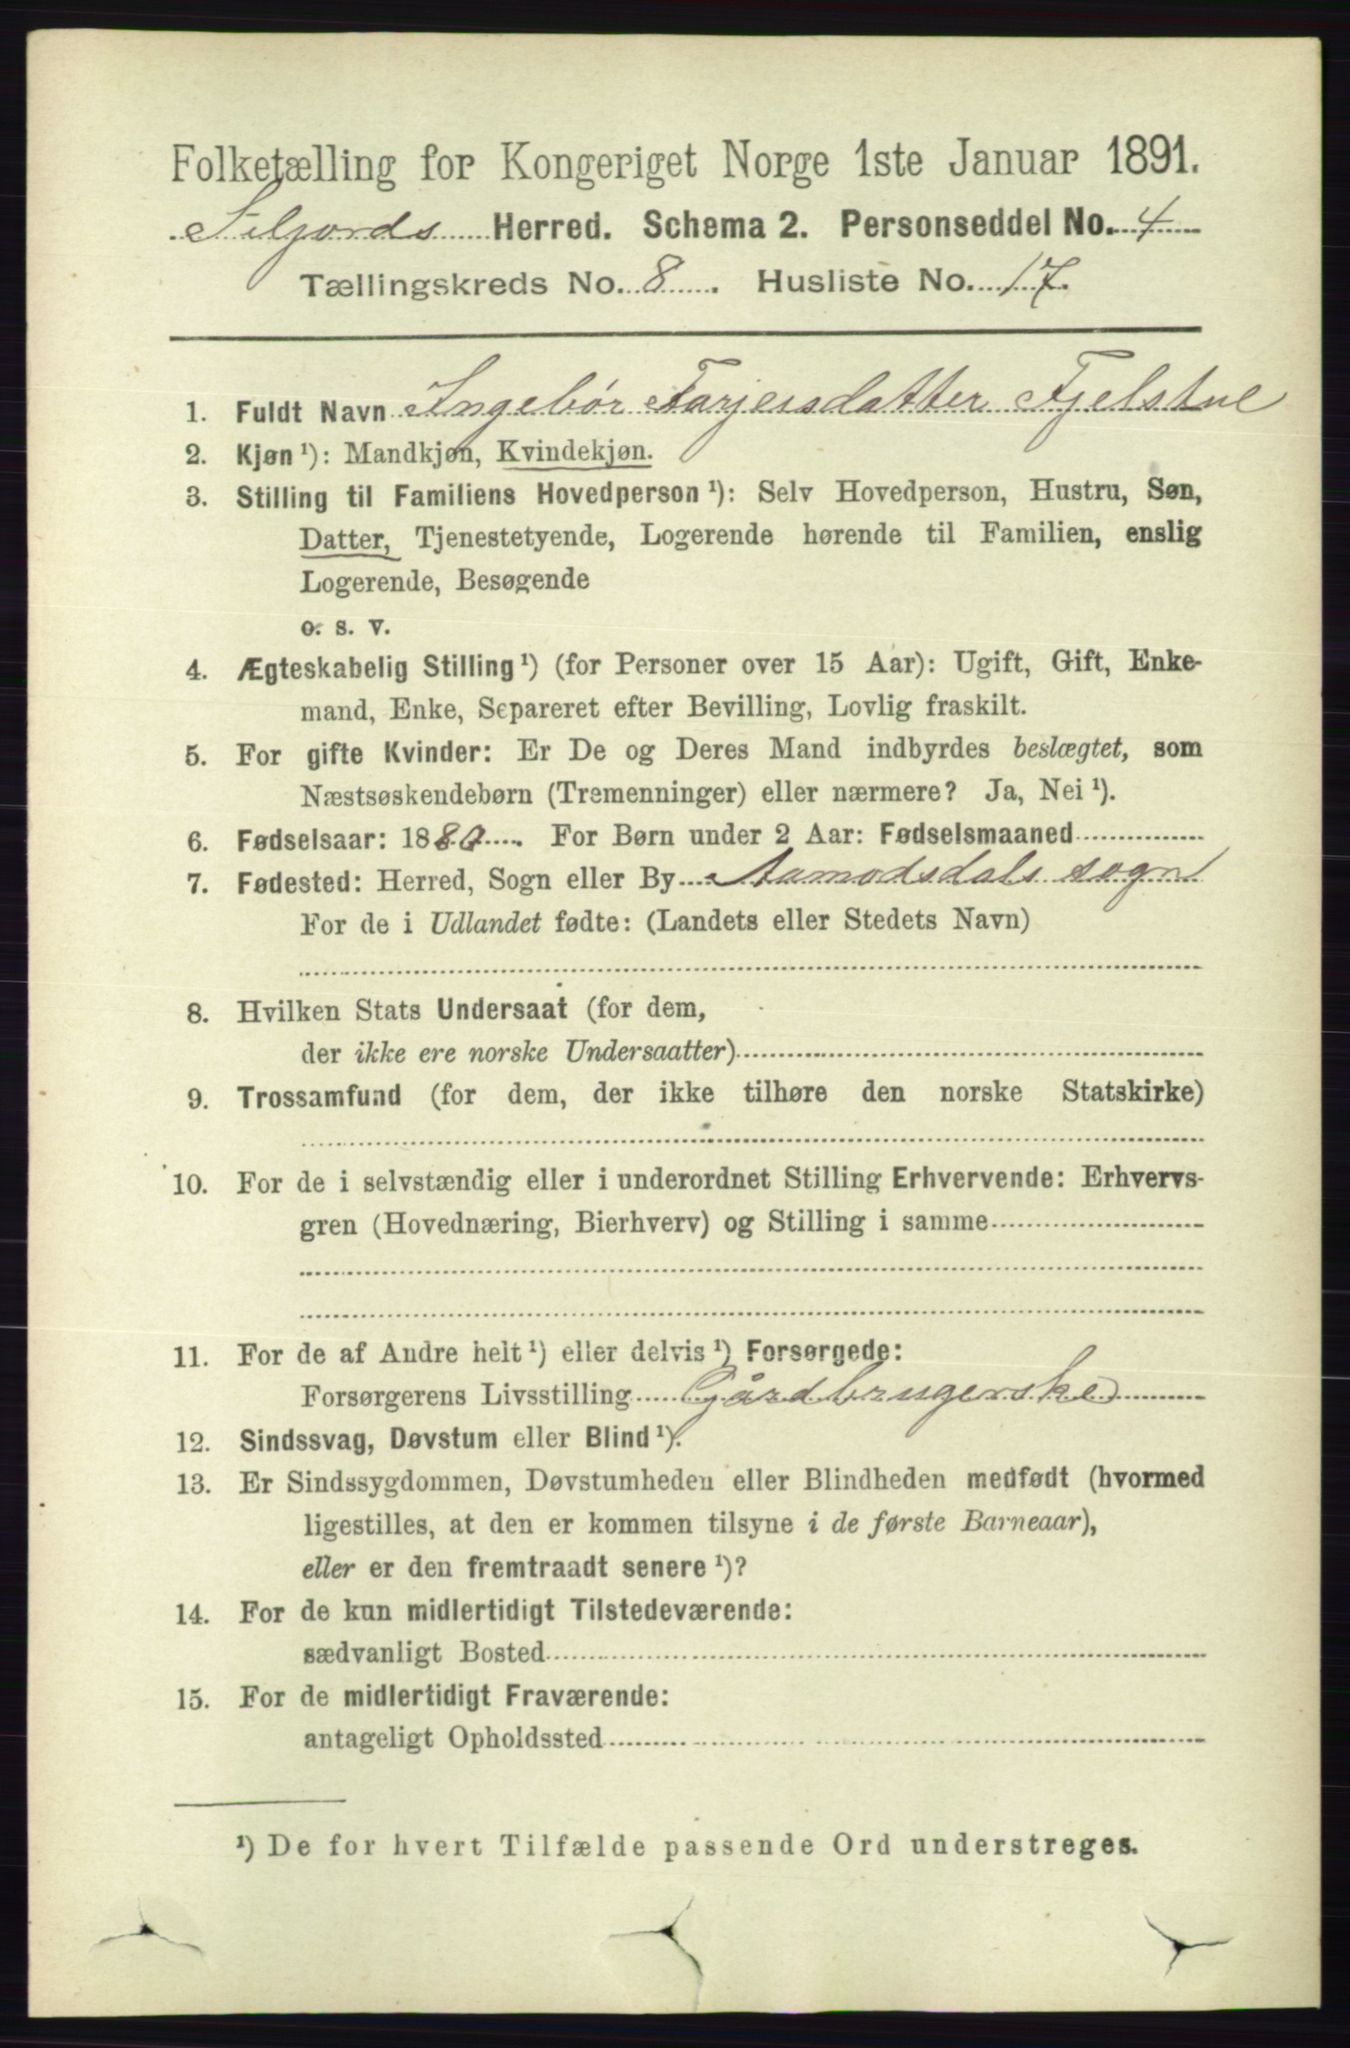 Folketælling for Kongeriget Norge 1ste Januar 1891.
Siljords Herred. Schema 2. Personseddel No. 4
Tællingskreds No. 8. Husliste No. 17.
1. Fuldt Navn Ingebør Tarjeisdatter Fjelstul
2. Kjøn ¹): Mandkjøn, Kvindekjøn.
3. Stilling til Familiens Hovedperson ¹): Selv Hovedperson, Hustru, Søn,
Datter, Tjenestetyende, Logerende hørende til Familien, enslig
Logerende, Besøgende
o. s. v.
4. Ægteskabelig Stilling ¹) (for Personer over 15 Aar): Ugift, Gift, Enke-
mand, Enke, Separeret efter Bevilling, Lovlig fraskilt.
5. For gifte Kvinder: Er De og Deres Mand indbyrdes beslægtet, som
Næstsøskendebørn (Tremenninger) eller nærmere? Ja, Nei ¹).
6. Fødselsaar: 1880. For Børn under 2 Aar: Fødselsmaaned
7. Fødested: Herred, Sogn eller By Aamodsdals sogn
For de i Udlandet fødte: (Landets eller Stedets Navn)
8. Hvilken Stats Undersaat (for dem,
der ikke ere norske Undersaatter)
9. Trossamfund (for dem, der ikke tilhøre den norske Statskirke)
10. For de i selvstændig eller i underordnet Stilling Erhvervende: Erhvervs-
gren (Hovednæring, Bierhverv) og Stilling i samme
11. For de af Andre helt ¹) eller delvis ¹) Forsørgede:
Forsørgerens Livsstilling Gårdbrugerske
12. Sindssvag, Døvstum eller Blind ¹).
13. Er Sindssygdommen, Døvstumheden eller Blindheden medfødt (hvormed
ligestilles, at den er kommen tilsyne i de første Barneaar),
eller er den fremtraadt senere ¹)?
14. For de kun midlertidigt Tilstedeværende:
sædvanligt Bosted
15. For de midlertidigt Fraværende:
antageligt Opholdssted
¹) De for hvert Tilfælde passende Ord understreges.